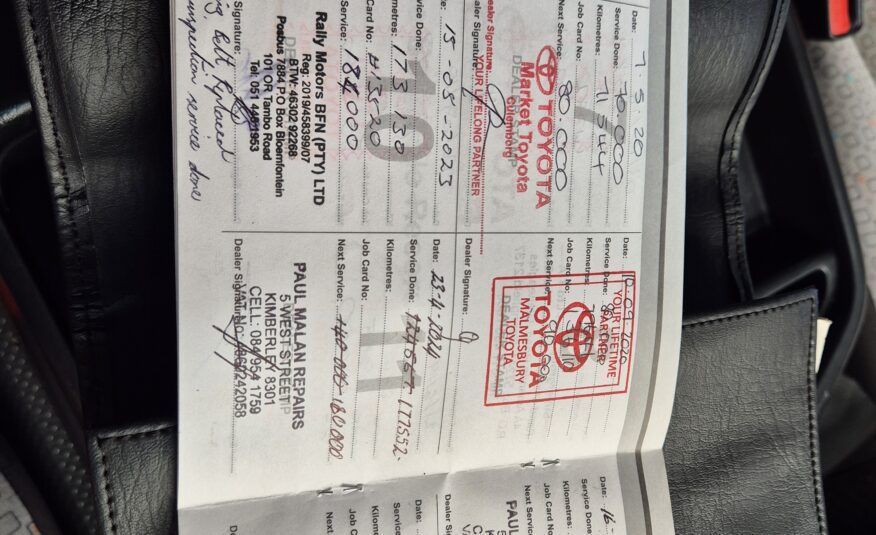 Date: 7-5-20
Service Done: 70.000
Kilometres: 71544
Job Card No:
Next Service: 80.000
TOYOTA
Market Toyota
Culemborg
Dealer Signature:
YOUR LIFELONG PARTNER
Date: 10-09-2020
Service Done:
Kilometres:
Job Card No:
Next Service: 90.000
YOUR LIFETIME
PARTNER
TOYOTA
MALMESBURY
TOYOTA
Dealer Signature:
Date: 16-
Service Done
Kilometres:
Job Card No:
Next Service:
PAUL
Dealer
10
te: 15-05-2023
Service Done:
ilometres: 173 130
Card No: H13520
Service: 184.000
Rally Motors BFN (PTY) LTD
Reg: 2019/45839907
BTW: 4630292268
Posbus 7884, P O Box Bloemfontein
101 OR Tambo Road
Tel: 051 4451953
Signature:
Belt Replaced
inspection service done
11
Date: 23-4-2024
Service Done: 177552.
Kilometres:
Job Card No:
Next Service: 180 000
PAUL MALAN REPAIRS
5 WEST STREET
KIMBERLEY 8301
CELL: 084 954 1759
Dealer Signature:
Date:
Service
Kilom
Job C
Next S
De